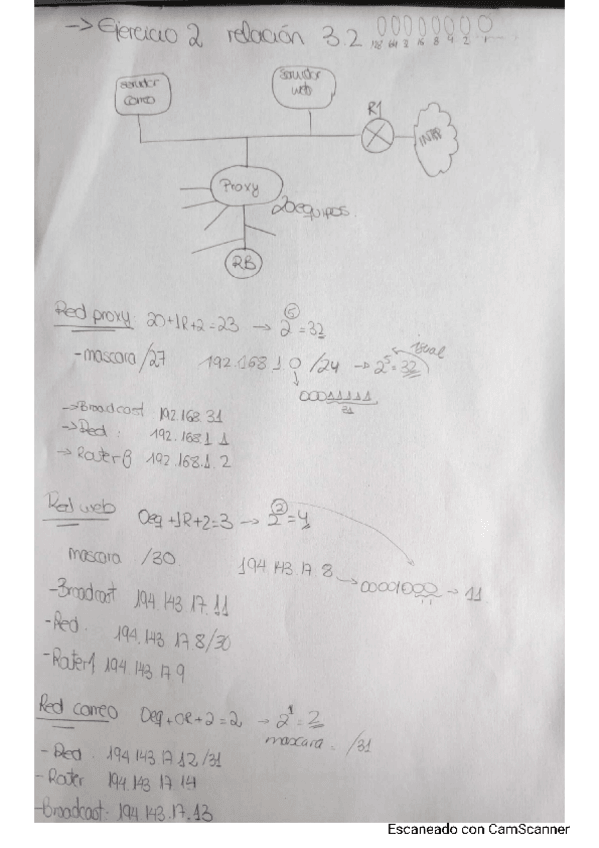 → Ejercicio 2 relación 3.2
128 64 32 16 8 4 2 1
servidor correo
servidor web
R1
Proxy
20 equipos
RB
Red proxy: 20+1R+2=23 → 2^5=32
- mascara /27 192.168.1.0 /24 → 2^5=32 igual
00011111
31
→ Broadcast 192.168.31
→ Red: 192.168.1.1
→ Router B 192.168.1.2
Red web 0eq+1R+2=3 → 2^2=4
mascara /30 194.143.17.8 → 00001000 → 11
- Broadcast 194.143.17.11
- Red. 194.143.17.8/30
- Router1 194.143.17.9
Red correo 0eq+0R+2=2 → 2^1=2
mascara = /31
- Red. 194.143.17.12/31
- Router 194.143.17.14
- Broadcast. 194.143.17.13
Escaneado con CamScanner